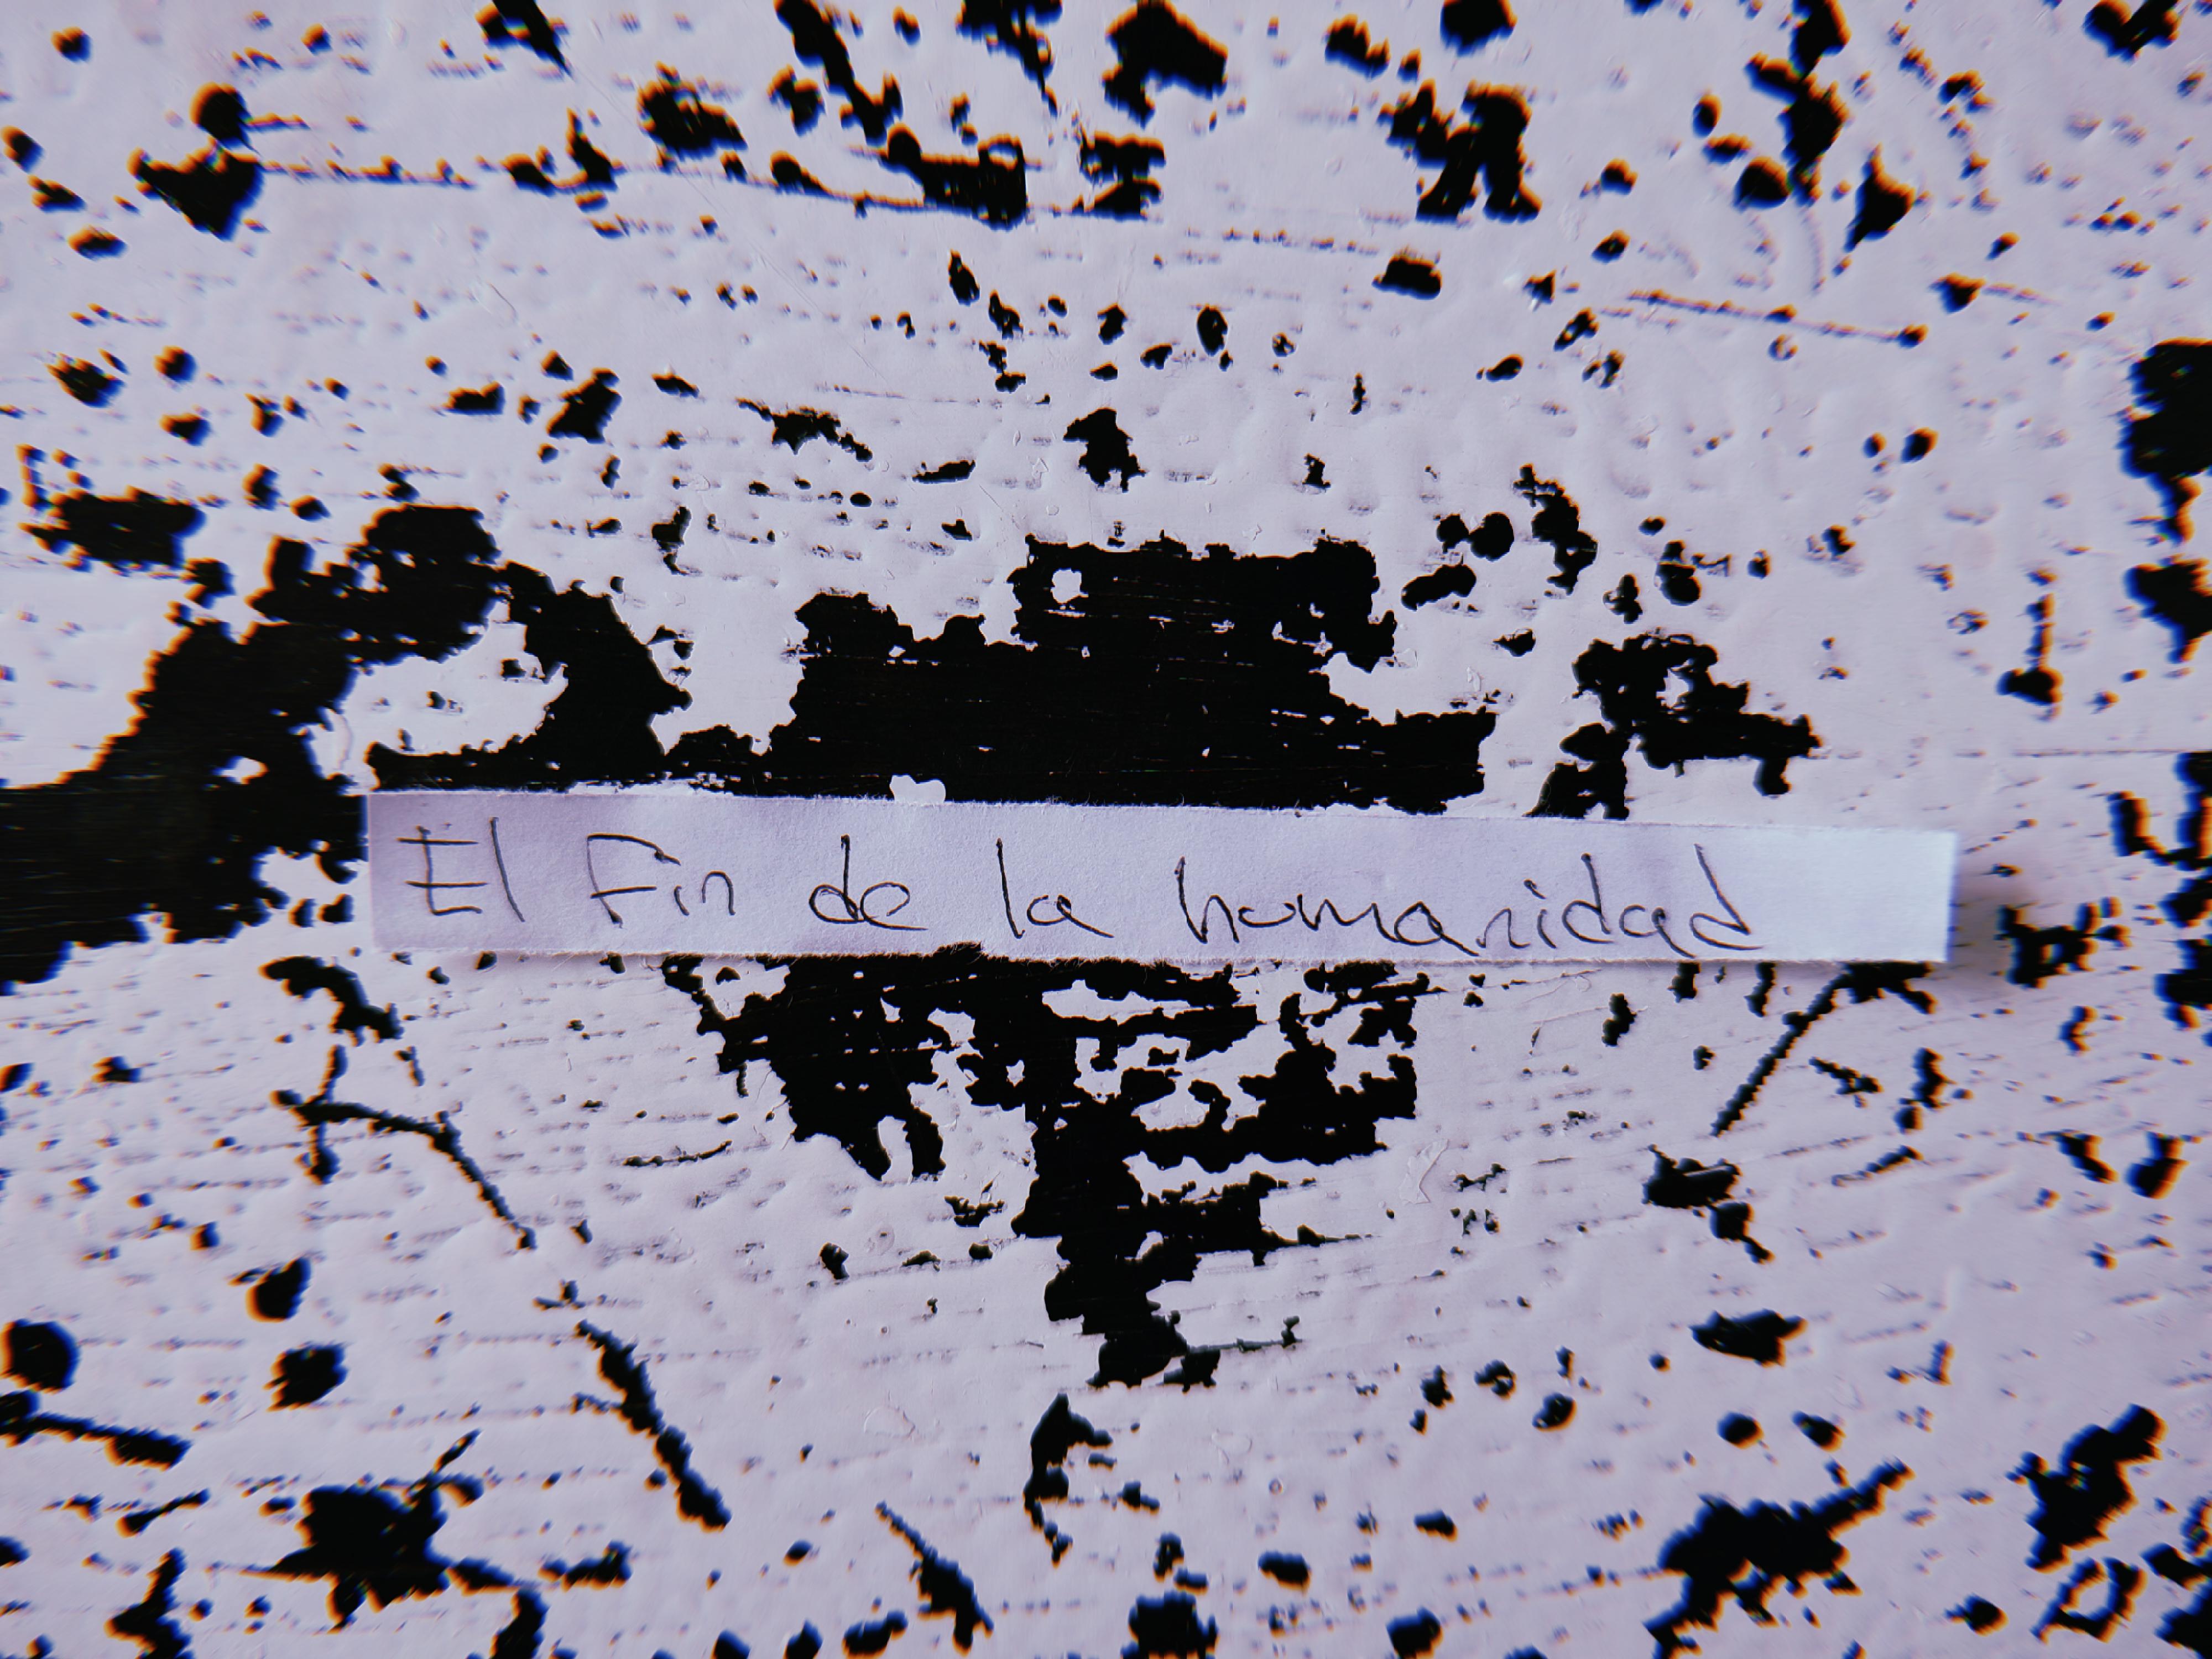 El Fin de la humanidad